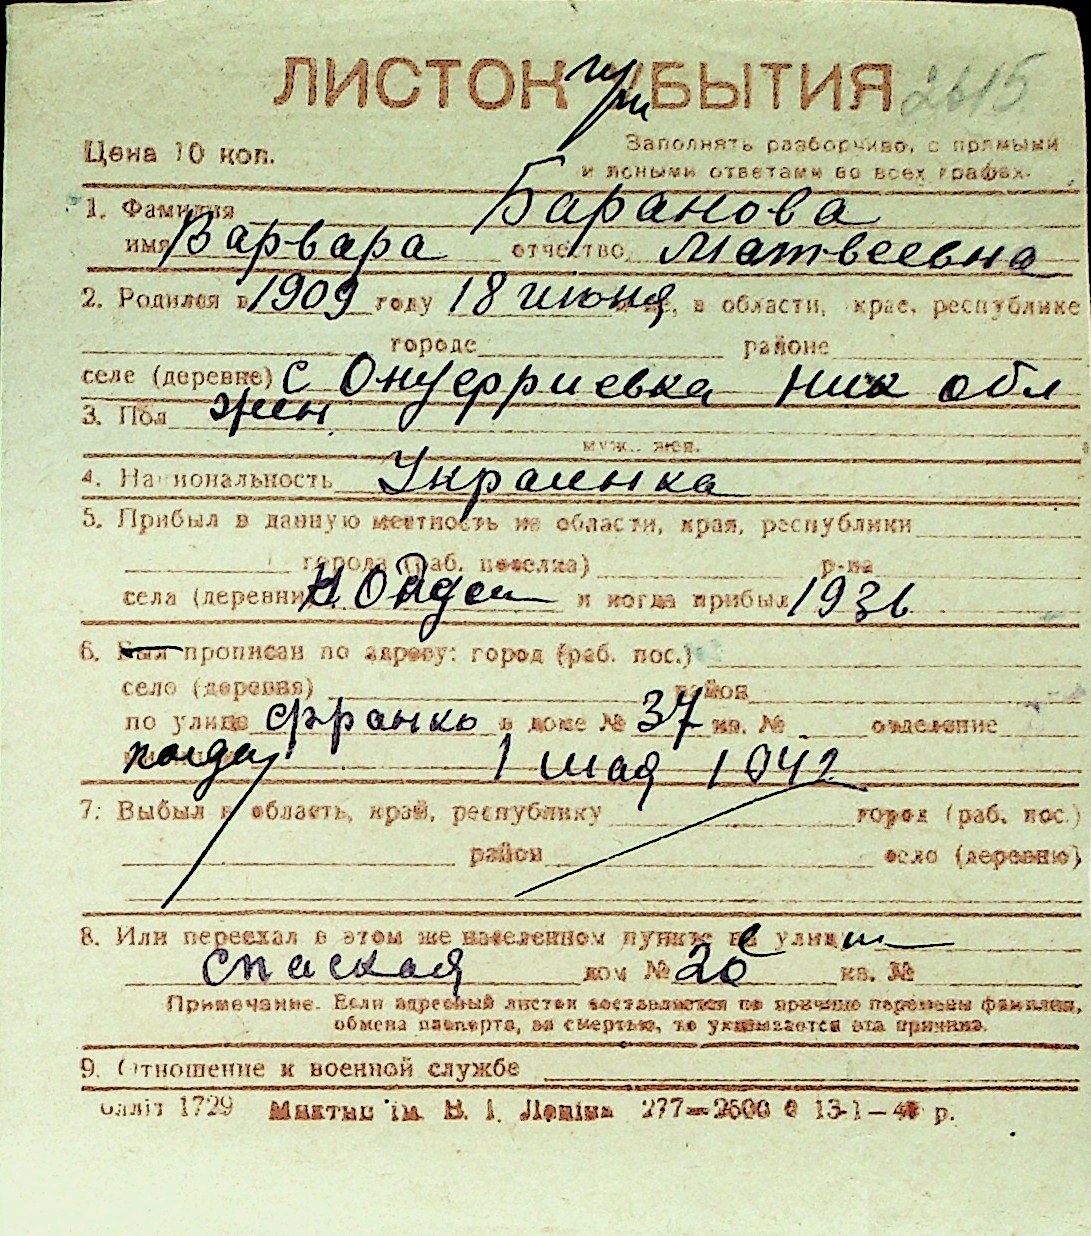 ЛИСТОК при БЫТИЯ 2615
Цена 10 коп.
Заполнять разборчиво, с прямыми
и ясными ответами во всех графах.
1. Фамилия Баранова
имя Варвара отчество Матвеевна
2. Родился в 1909 году 18 июня, в области, крае, республике
городе районе
селе (деревне) с Онуфриевка Ник обл
3. Пол жен
муж., жен.
4. Национальность Украинка
5. Прибыл в данную местность из области, края, республики
города (раб. поселка) р-на
села (деревни) и когда прибыл 1936
6. Был прописан по адресу: город (раб. пос.)
село (деревня) район
по улице Франко в доме № 37 кв. № отделение
когда 1 мая 1942
7. Выбыл в область, край, республику город (раб. пос.)
район село (деревню)
8. Или переехал в этом же населенном пункте с улицы
Спаская дом № 26 кв. №
Примечание. Если адресный листок составляется по причине перемены фамилии,
обмена паспорта, за смертью, то указывается эта причина.
9. Отношение к военной службе
1729 ім. В. І. Леніна 277—2500 13-1—41 р.